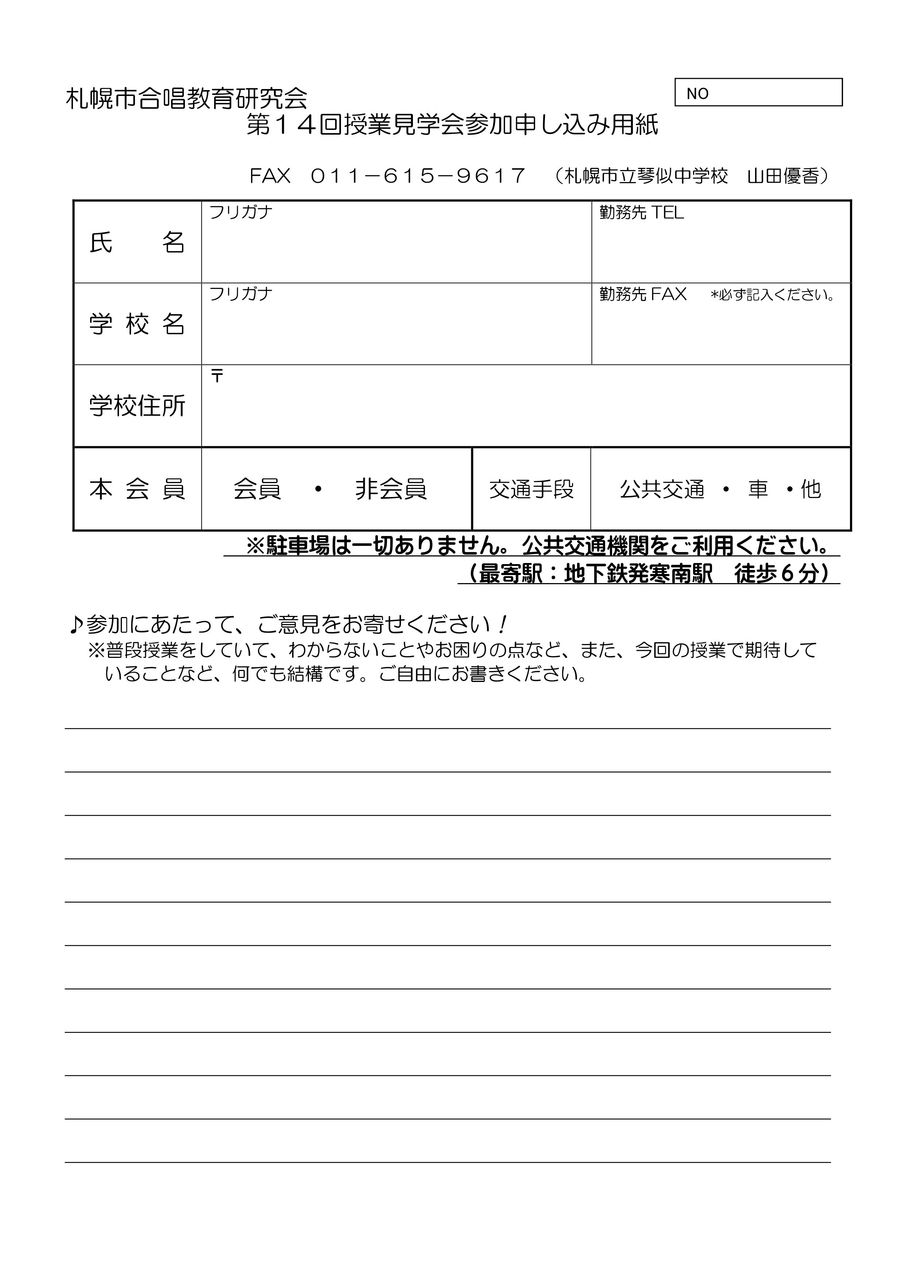 札幌市合唱教育研究会
NO
第１４回授業見学会参加申し込み用紙
FAX　０１１－６１５－９６１７　（札幌市立琴似中学校　山田優香）
氏　　名
フリガナ
勤務先 TEL
学 校 名
フリガナ
勤務先 FAX　*必ず記入ください。
学校住所
〒
本 会 員
会員　・　非会員
交通手段
公共交通 ・ 車 ・他
※駐車場は一切ありません。公共交通機関をご利用ください。
（最寄駅：地下鉄発寒南駅　徒歩６分）
♪参加にあたって、ご意見をお寄せください！
※普段授業をしていて、わからないことやお困りの点など、また、今回の授業で期待して
いることなど、何でも結構です。ご自由にお書きください。